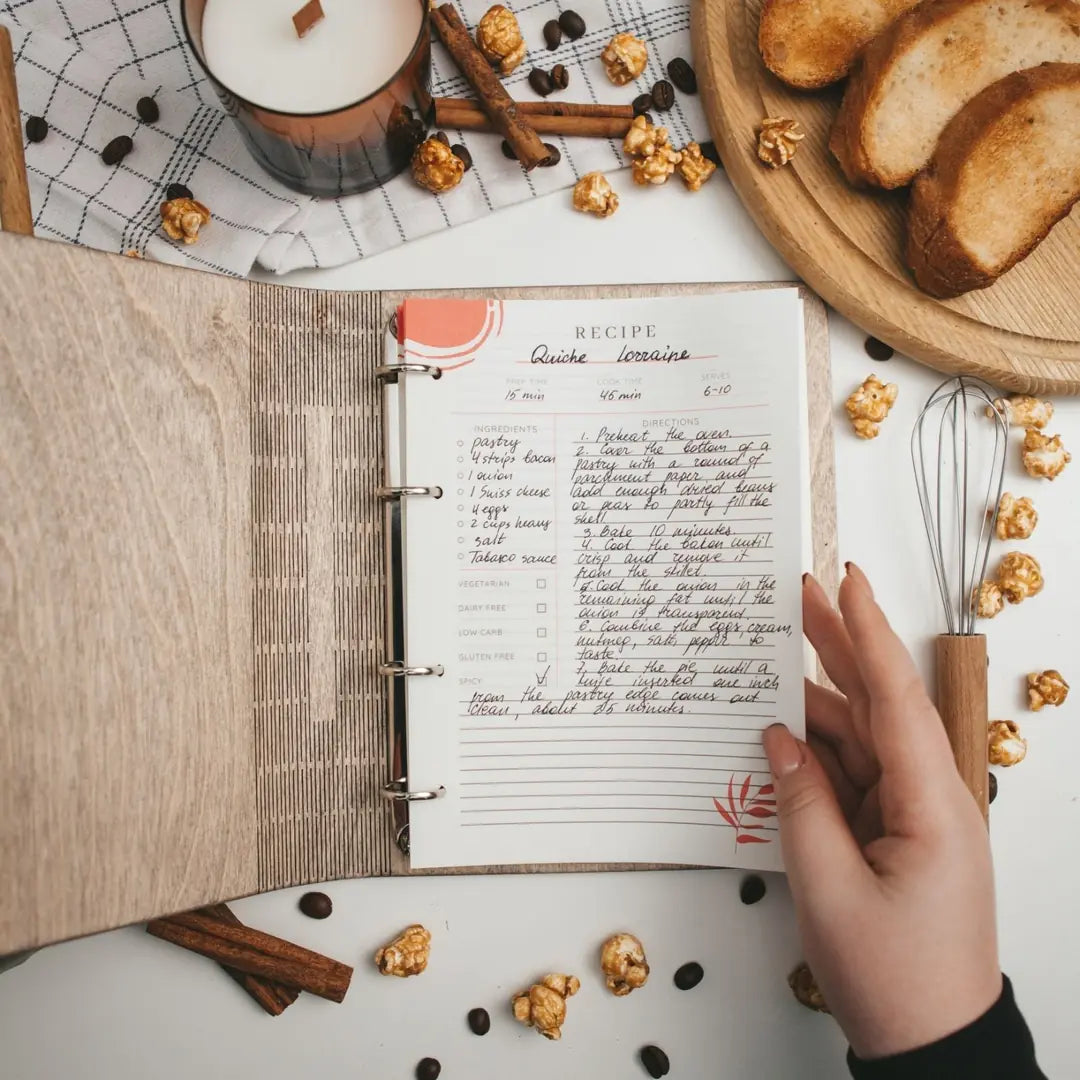 RECIPE
Quiche Lorraine
PREP TIME COOK TIME SERVES
15 min 45 min 6-10
INGREDIENTS
pastry
4 strips bacon
1 onion
1 Swiss cheese
4 eggs
2 cups heavy
salt
Tabasco sauce
VEGETARIAN
DAIRY FREE
LOW CARB
GLUTEN FREE
SPICY
DIRECTIONS
1. Preheat the oven.
2. Cover the bottom of a
pastry with a round of
parchment paper and
add enough dried beans
or peas to partly fill the
shell.
3. Bake 10 minutes.
4. Cook the bacon until
crisp and remove it
from the skillet.
5. Cook the onion in the
remaining fat until the
onion is transparent.
6. Combine the eggs, cream,
nutmeg, salt, pepper to
taste.
7. Bake the pie until a
knife inserted one inch
from the pastry edge comes out
clean, about 25 minutes.